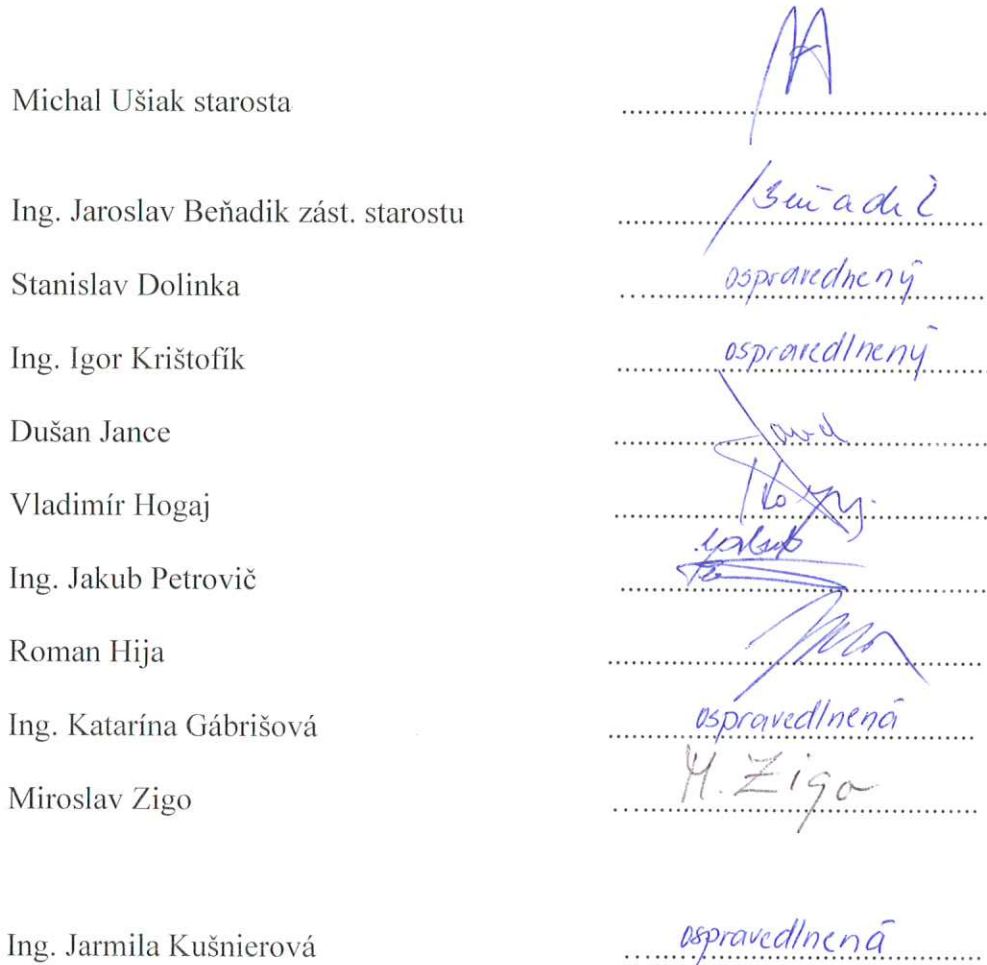 Michal Ušiak starosta
Ing. Jaroslav Beňadik zást. starostu Beňadik
Stanislav Dolinka ospravednený
Ing. Igor Krištofík ospravedlnený
Dušan Jance
Vladimír Hogaj
Ing. Jakub Petrovič
Roman Hija
Ing. Katarína Gábrišová ospravedlnená
Miroslav Zigo M. Zigo
Ing. Jarmila Kušnierová ospravedlnená